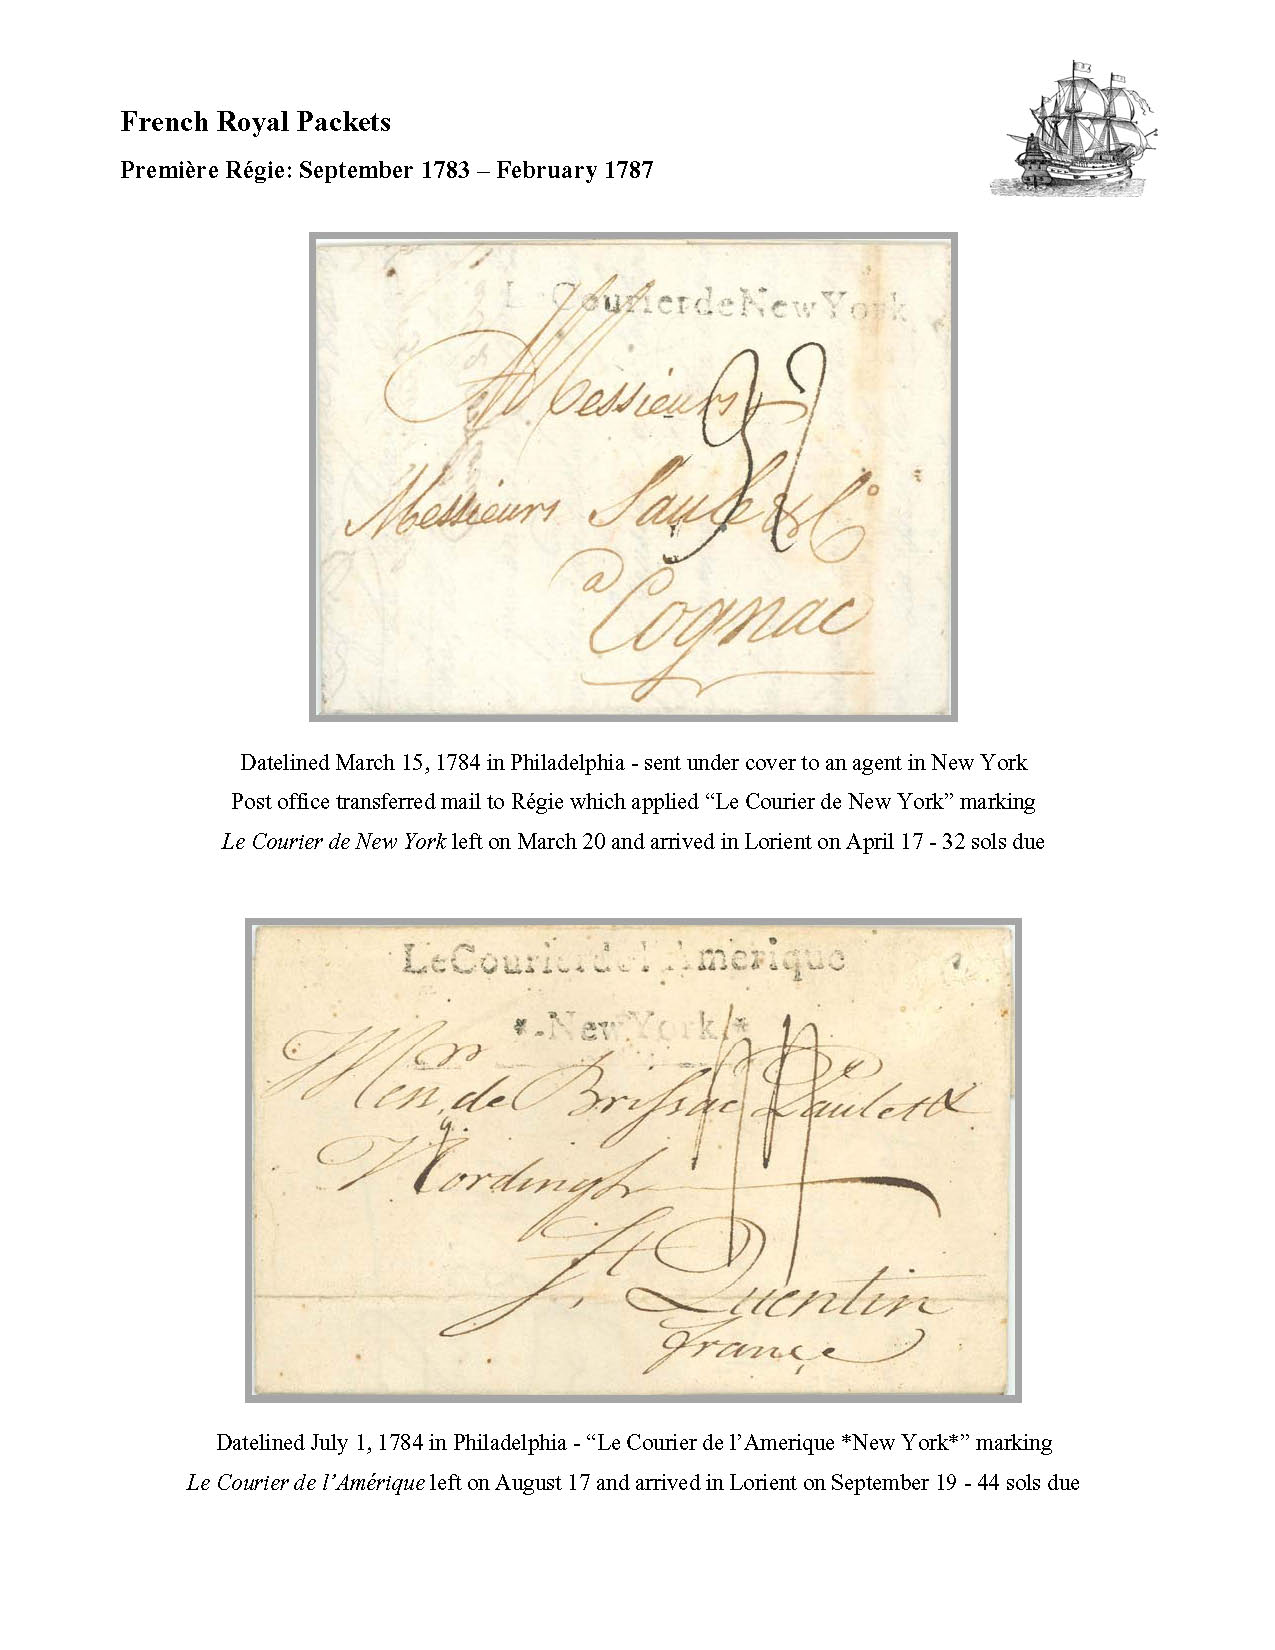 French Royal Packets
Première Régie: September 1783 – February 1787
Le Courier de New York
Messieurs
32
Messieurs Saule & Co
a
Cognac
Datelined March 15, 1784 in Philadelphia - sent under cover to an agent in New York
Post office transferred mail to Régie which applied “Le Courier de New York” marking
Le Courier de New York left on March 20 and arrived in Lorient on April 17 - 32 sols due
Le Courier de l'Amerique
*-New York.*
de Brissac Paulet &
44
St. Quentin
france
Datelined July 1, 1784 in Philadelphia - “Le Courier de l’Amerique *New York*” marking
Le Courier de l’Amérique left on August 17 and arrived in Lorient on September 19 - 44 sols due